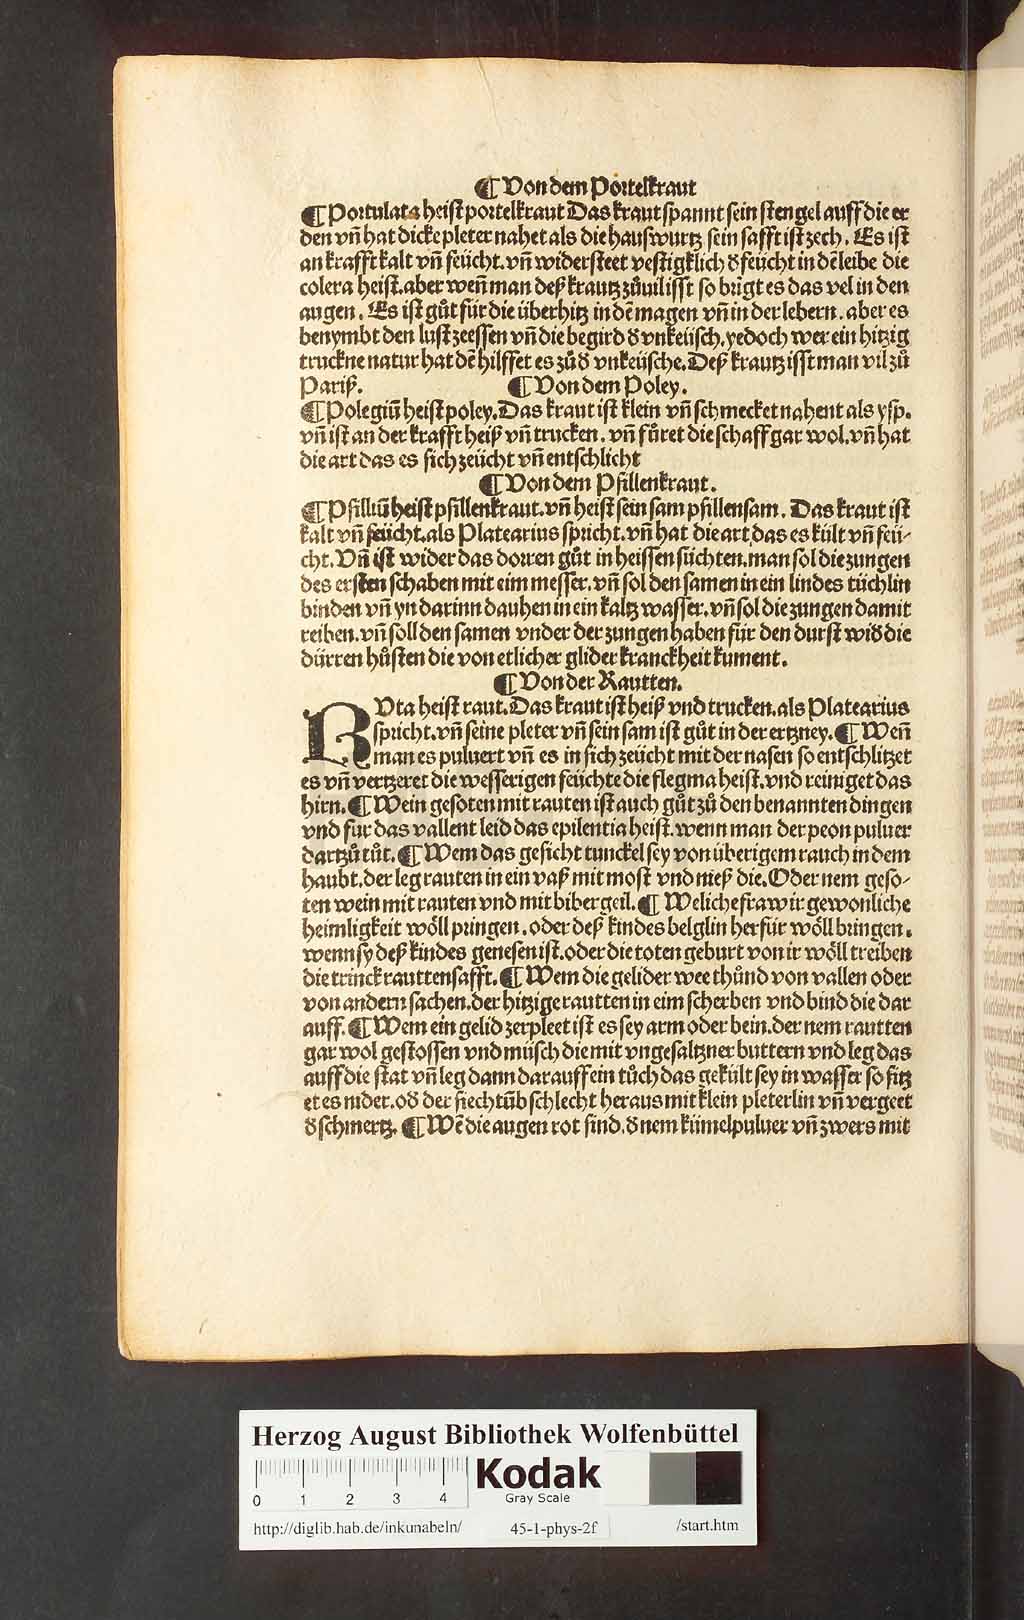 ¶ Von dem Portelkraut
¶ Portulata heist portelkraut Das kraut spannt sein stengel auff die er
den vñ hat dicke pleter nahet als die hauswurtz sein safft ist zech. Es ist
an krafft kalt vñ feücht. vñ widersteet vestigklich d̕ feücht in dē leibe die
colera heist. aber weñ man deß krautz zůuil isst so brīgt es das vel in den
augen. Es ist gůt für die überhitz in dē magen vñ in der lebern. aber es
benymbt den lust ze essen vñ die begird d̕ vnkeüsch. yedoch wer ein hitzig
truckne natur hat dē hilffet es zů d̕ vnkeüsche. Deß krautz isst man vil zů
Pariß. ¶ Von dem Poley.
¶ Polegiū heist poley. Das kraut ist klein vñ schmecket nahent als ysp.
vñ ist an der krafft heiß vñ trucken. vñ fůret die schaff gar wol. vñ hat
die art das es sich zeücht vñ entschlicht
¶ Von dem Psillenkraut.
¶ Psilliū heist psillenkraut. vñ heist sein sam psillensam. Das kraut ist
kalt vñ feücht. als Platearius spricht. vñ hat die art das es kült vñ feü-
cht. Vñ ist wider das dorren gůt in heissen süchten. man sol die zungen
des ersten schaben mit eim messer. vñ sol den samen in ein lindes tüchlin
binden vñ yn darinn dauhen in ein kaltz wasser. vñ sol die zungen damit
reiben. vñ soll den samen vnder der zungen haben für den durst wid̕ die
dürren hůsten die von etlicher glider kranckheit kument.
¶ Von der Rautten.
RVta heist raut. Das kraut ist heiß vnd trucken. als Platearius
spricht. vñ seine pleter vñ sein sam ist gůt in der ertzney. ¶ Weñ
man es puluert vñ es in sich zeücht mit der nasen so entschlitzet
es vñ vertzeret die wesserigen feüchte die flegma heist. vnd reiniget das
hirn. ¶ Wein gesoten mit rauten ist auch gůt zů den benannten dingen
vnd fur das vallent leid das epilentia heist. wenn man der peon puluer
dartzů tůt. ¶ Wem das gesicht tunckel sey von überigem rauch in dem
haubt. der leg rauten in ein vaß mit most vnd nieß die. Oder nem geso-
ten wein mit rauten vnd mit bibergeil. ¶ Weliche fraw ir gewonliche
heimligkeit wöll pringen. oder deß kindes belglin herfür wöll bringen.
wenn sy deß kindes genesen ist. oder die toten geburt von ir wöll treiben
die trinck rauttensafft. ¶ Wem die gelider wee thůnd von vallen oder
von andern sachen. der hitzige rautten in eim scherben vnd bind die dar
auff. ¶ Wem ein gelid zerpleet ist es sey arm oder bein. der nem rautten
gar wol gestossen vnd müsch die mit vngesaltzner buttern vnd leg das
auff die stat vñ leg dann darauff ein tůch das gekült sey in wasser so sitz
et es nider. od̕ der siechtūb schlecht heraus mit klein pleterlin vñ vergeet
d̕ schmertz. ¶ Wē die augen rot sind. d̕ nem kümelpuluer vñ zwers mit
Herzog August Bibliothek Wolfenbüttel
0 1 2 3 4
Kodak
Gray Scale
http://diglib.hab.de/inkunabeln/ 45-1-phys-2f /start.htm